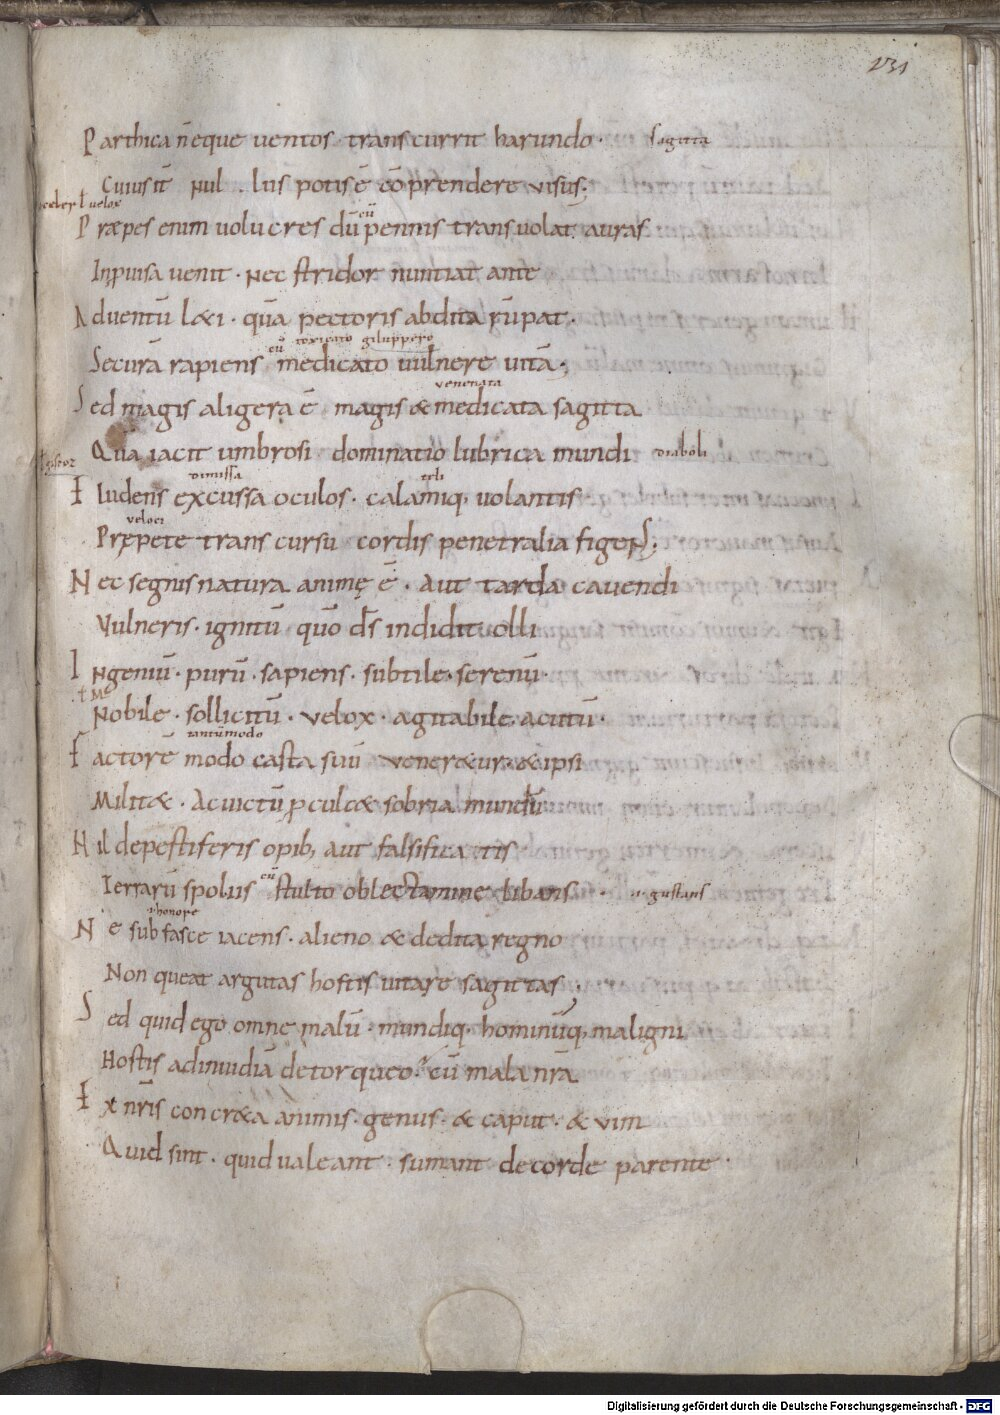 231
Parthica n̄eque ventos · transcurrit harundo · sagitta
Cuius it̄ nul lus potis ē cōprendere visus;
celer ł velox
cū
Præpes enim uolucres dū pennis transuolat auras
Inpuisa uenit · nec stridor nuntiat ante
Aduentū læti · quā pectoris abdita rūpat ·
cū toxicato giluppero
Securā rapiens medicato uulnere uitā;
venenata
Sed magis aligera ē magis & medicata sagitta
Qua iacit umbrosi dominatio lubrica mundi diaboli
dimissa teli
Eludens excussa oculos · calamiq; uolantis
veloci
Præpete transcursu cordis penetralia figens;
Nec segnis natura animę ē · aut tarda cavendi
Vulneris · ignitū quō ds̄ indidit olli
Ingeniū · purū · sapiens · subtile · serenū ·
Nobile · sollicitū · velox · agitabile · acutū ·
tantūmodo
Factorē modo casta suū veneretur · & ipsi
Militæt · ac uictū ꝓculcæt sobria mundū
Nil de pestiferis opib; aut falsificatis
cū
Terrarū spoliis stulto oblectamine libans · · i · gustans
i honore
Ne sub fasce iacens · alieno & dedita regno
Non queat argutas hostis uitare sagittas ·
Sed quid ego omne malū · mundiq; hominūq; maligni
Hostis ad inuidiā detorqueo · cū mala nr̄a
Ex nr̄is concreta animis · genus · & caput · & vim
Quid sint · quid ualeant · sumant de corde parente ·
Digitalisierung gefördert durch die Deutsche Forschungsgemeinschaft - DFG